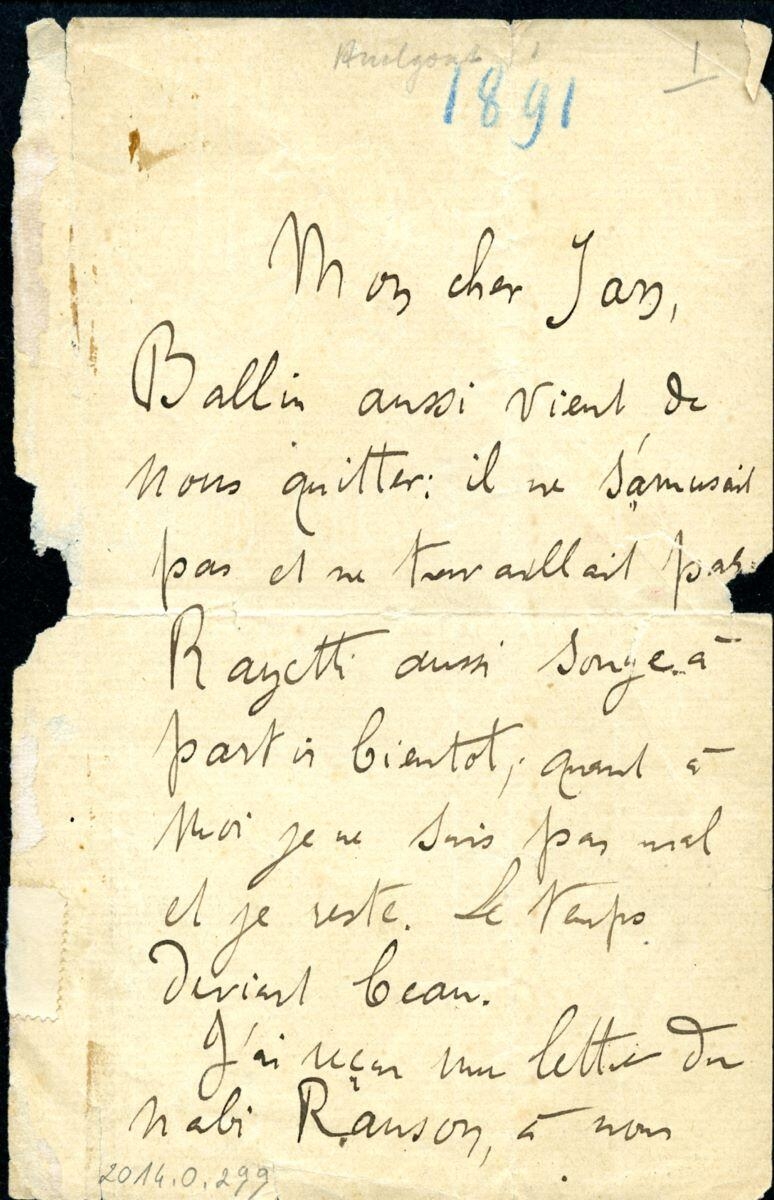 1
1891
Mon cher Jan,
Ballin aussi vient de
nous quitter: il ne s'amusait
pas et ne travaillait pas.
Rayetti aussi songe à
partir bientot; quant à
moi je ne suis pas mal
et je reste. Le temps
devient beau.
J'ai reçu une lettre du
nabi Ranson, à nous
2014.0.299